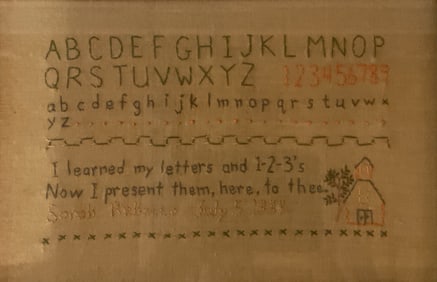 ABCDEFGHIJKLMNOP
QRSTUVWXYZ 123456789
abcdefghijklmnopqrstuvwx
yz
I learned my letters and 1-2-3's
Now I present them, here, to thee.
Sarah July 5